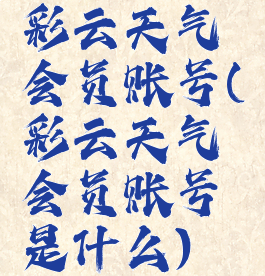 彩云天气
会员账号(
彩云天气
会员账号
是什么)